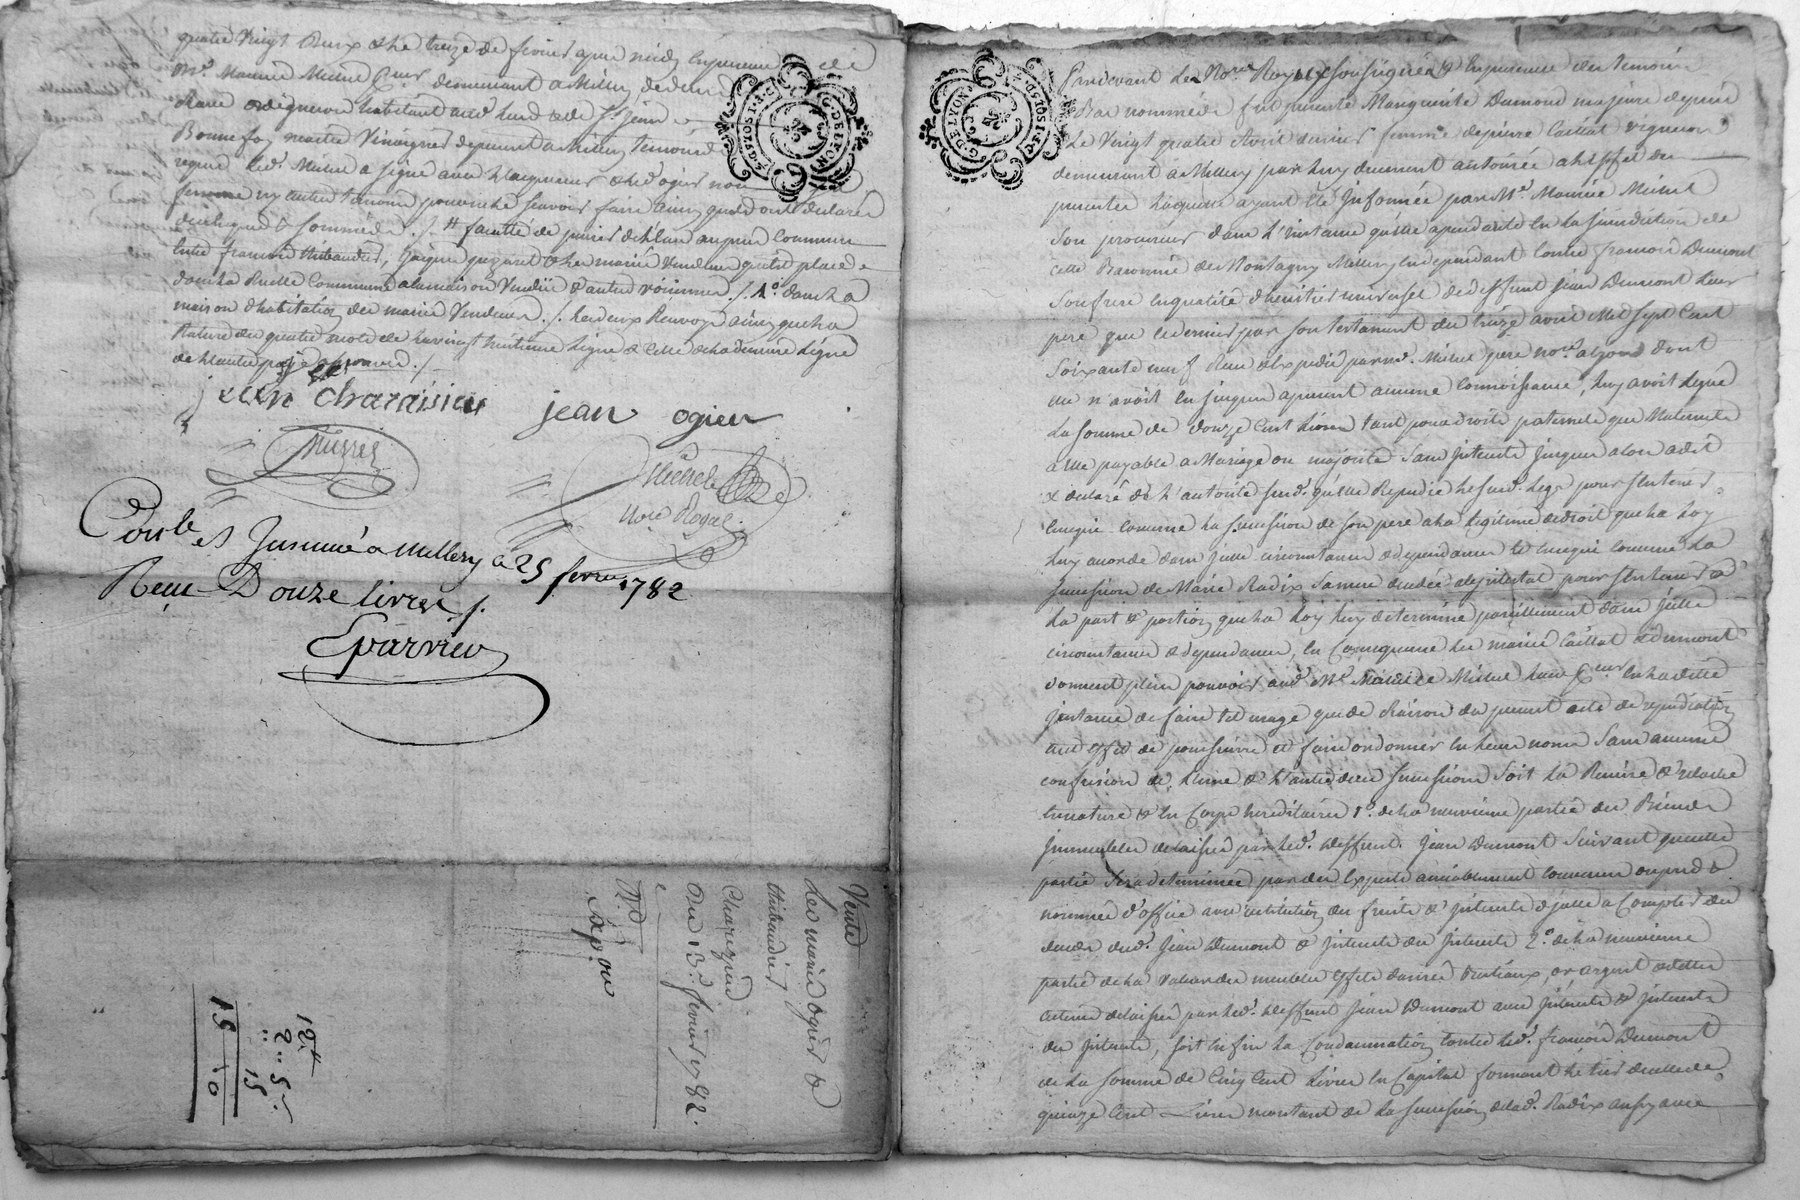 quatre vingt Deux & le treize de fevrier apres midy En presence de
Me. Maurice Michel demeurant a Millery
habitant aud. lieu de St. jean
Bonnefoy maitre Vinaigrier a Millery temoins
requis led. Michel a signé avec & led. ogier non
femme ny autre temoin pour ne le sçavoir faire ainsy qu'ils ont déclaré
enquis & Sommés ./. # faculté de puiser de l'eau au puits Commun
Entre françois thibaudier, & les mariés Vendeurs place
dans la Ruelle Commune a la maison Vendüe & autres voisins ./. 1o. dans la
maison d'habitation des mariés Vendeurs ./. les deux Renvoys ainsy que la
Rature de quatre mots de la vingt huitieme ligne & Celle de la derniere ligne
de l'autre page approuvés ./.
jean charaisieu jean ogier
Michel
Nore Royal
Conlé et Insinué a Millery le 25 fevrier 1782
Reçu Douze livres ./.
Eparvier
Vente
Les mariés Ogier &
thibaudier
Charezieu
Du 13e. fevrier 1782.
Expou
12 #
2 " 5 s
" 15
15 " 0
G. DE LYON
G. DE LYON
Pardevant Les Nores. Royaux Soussignés & En presence des temoins
Bas nommés fut presente Marguerite Dumond majeure depuis
Le Vingt quatre Avril dernier femme de pierre Caillat vigneron
demeurant a Millery par luy duement autorisée a l'effet des
presentes Laquelle ayant été Informée par Me. Maurice Michel
Son procureur dans L'instance qu'elle a pendante En la Jurisdiction de
cette Baronnie de Montagny Millery En dependant Contre françois Dumont
Son frere En qualité d'heritier universel de deffunt Jean Dumont leur
pere que ce dernier par Son testament du treize avril Mil sept Cent
Soixante neuf Reçu & Expedié par me. Michel pere nore. alors dont
elle n'avoit En jusques a present aucune Connoissance, luy avoit legué
La Somme de douze Cent livres tant pour droits paternels que Maternels
a elle payable a Mariage ou majorité Sans Interets jusques alors a dit
& declaré de L'autorité susd. qu'elle Repudie le susd. legs pour s'en tenir
En ce qui Concerne la Succession de son pere a la legitime de droit que la loy
luy accorde dans Juste circonstances & dependances & En ce qui Concerne La
Succession de Marie Radix Sa mere decedée ab intestat pour s'En tenir a
La part & portion que la loy luy determine pareillement dans Juste
circonstances & dependances, En Consequence les mariés Caillat & Dumont
donnent plein pouvoir aud. Me. Maurice Michel leur En ladite
Instance de faire tel usage que de Raison du present acte de repudiation
aux effets de poursuivre et faire ordonner En leurs noms Sans aucune
confusion de L'une & L'autre des Successions Soit la Remise & relache
En nature & En Corps hereditaires 1o. de la neuvieme partie des Biens
Immeubles delaissés par led. deffunt Jean Dumont Suivant que cette
partie Sera determinée par des Experts amiablement Convenus ou pris &
nommés d'office avec restitution des fruits & Interets d'yceux a Compter du
deces dud. Jean Dumont & Interets des Interets 2o. de la neuvieme
partie de la valeur des meubles effets danrées bestiaux, or argent dettes
actives delaissés par led. deffunt Jean Dumont avec Interets & Interets
des Interets, soit En fin la Condamnation Contre led. françois Dumont
de La Somme de Cinq Cent Livres En Capital formant le tiers de celle de
quinze Cent Livres montant de La Succession de lad. Radix aussy avec